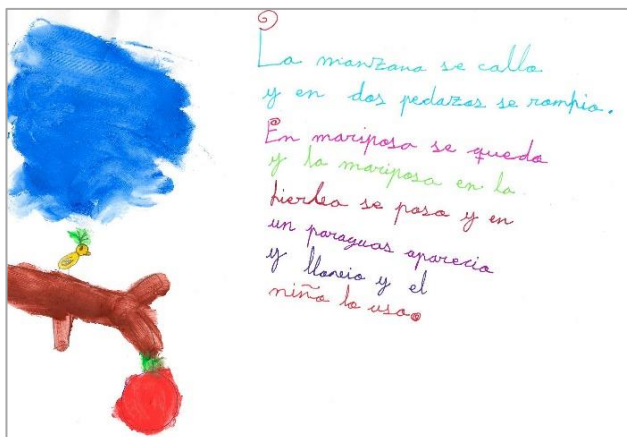 La manzana se calló
y en dos pedazos se rompio.
En mariposa se quedo
y la mariposa en la
hierba se posa y en
un paraguas aparecio
y llovio y el
niño lo uso.